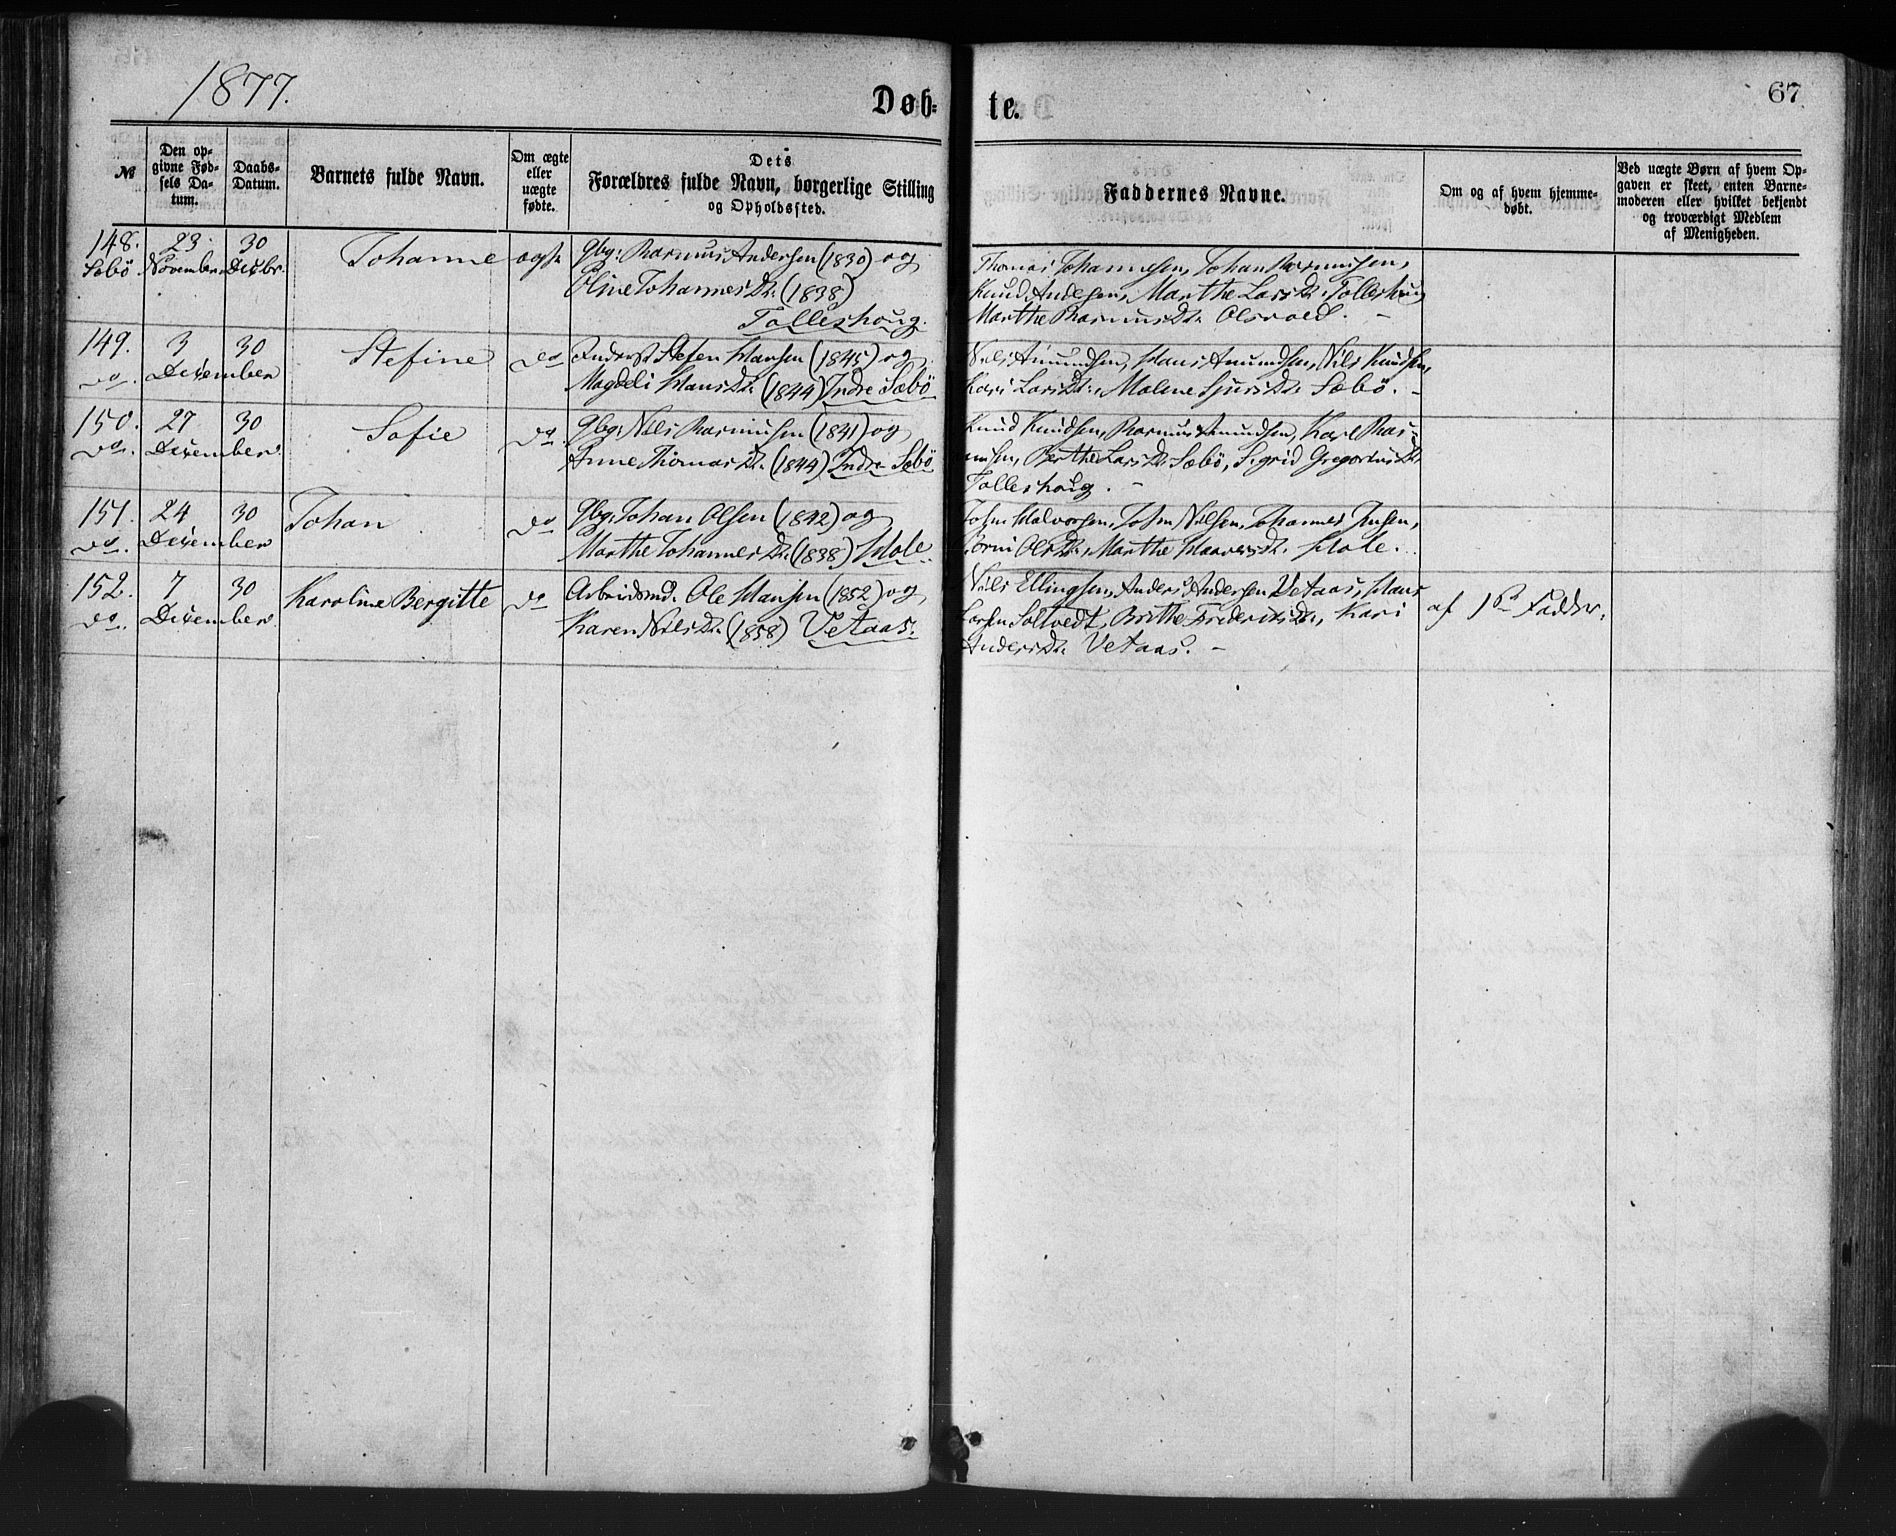 1877.
Døb-
te.
67
№
Den op-
givne Fød-
sels Da-
tum.
Daabs-
Datum.
Barnets fulde Navn.
Om ægte
eller
uægte
fødte.
Dets
Forældres fulde Navn, borgerlige Stilling
og Opholdssted.
Faddernes Navne.
Om og af hvem hjemme-
døbt.
Ved uægte Børn af hvem Op-
gaven er skeet, enten Barne-
moderen eller hvilket bekjendt
og troværdigt Medlem
af Menigheden.
148. 23 30 Johanne ægte Gbr: Rasmus Andersen (1830) og
Sæbö November Decbr. Oline Johannesdr. (1838)
Tolleshoug.
Thomas Johannesen, Johan Rasmussen,
Knud Andersen, Marthe Larsdr. Tolleshoug
Marthe Rasmusdr. Olsvold. -
149. 3 30 Stefine do Inderst Stefen Hansen (1845) og
do. December Magdeli Hansdr. (1844) Indre Sæbö
Nils Amundsen, Hans Amundsen, Nils Knudsen,
Kari Larsdr., Malene Sjursdr. Sæbö. -
150. 27 30 Sofie do. Gbr: Nils Rasmusen (1841) og
do. December Anne Thomasdr. (1844) Indre Sæbö
Knud Knudsen, Rasmus Amundsen, Karl Ras-
musen, Berthe Larsdr. Sæbö, Sigrid Gregoriusdr.
Tolleshoug. -
151. 24 30 Johan do Gbr: Johan Olsen (1842) og
do. December Marthe Johannesdr. (1838) Hole.
John Halvorsen, John Nilsen, Johannes Jensen,
Gorni Olsdr., Marthe Haaversdr. Hole.
152. 7 30 Karoline Bergitte do Arbeidsmd. Ole Hansen (1852) og
do. December Karen Nilsdr. (1858) Vetaas.
Nils Ellingsen, Anders Andersen Vetaas, Hans
Larsen Soltvedt, Brithe Frederiksdr., Kari
Andersdr. Vetaas. -
af 1ste Fadder.